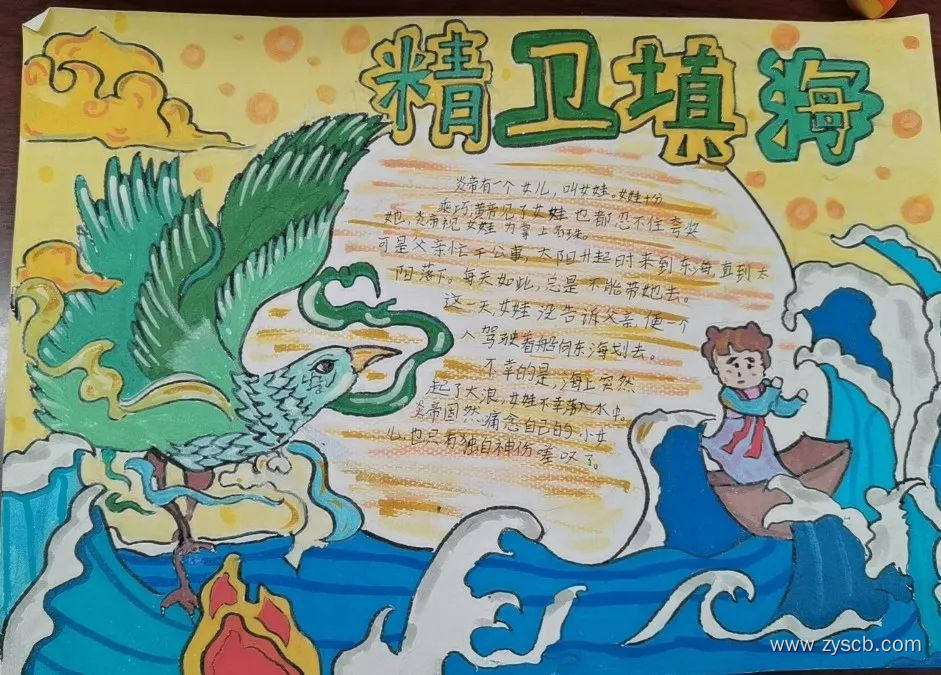 精卫填海
炎帝有一个女儿,叫女娃。女娃十分
乖巧,黄帝见了女娃也都忍不住夸奖
她,炎帝视女娃为掌上明珠。
可是父亲忙于公事,太阳升起时来到东海,直到太
阳落下。每天如此,总是不能带她去。
这一天,女娃没告诉父亲,便一个
人驾驶着船向东海划去。
不幸的是,海上突然
起了大浪,女娃不幸落入水中。
炎帝固然痛念自己的小女
儿,也只有独自神伤嗟叹了。
www.zyscb.com